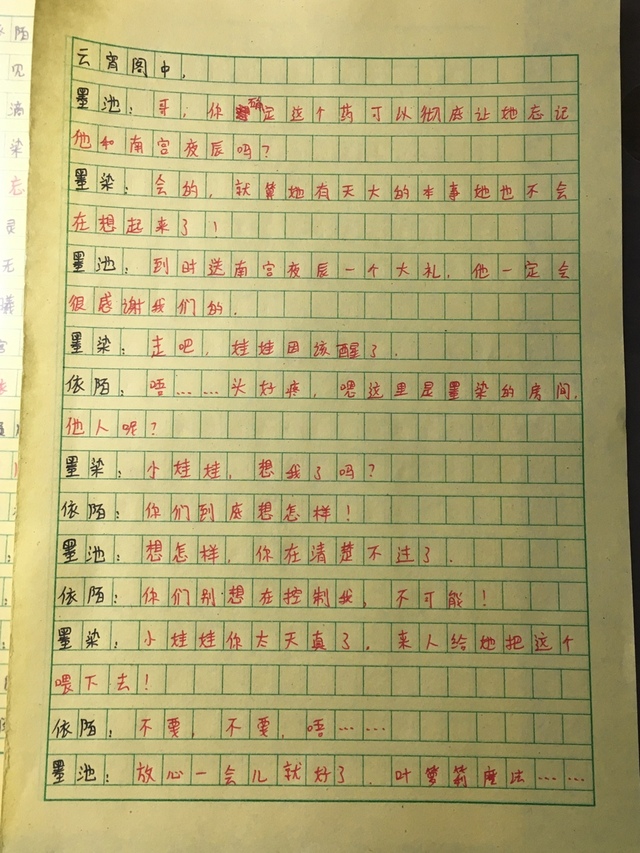 云宵阁中，
墨池：哥，你确定这个药可以彻底让她忘记
他和南宫夜辰吗？
墨染：会的，就算她有天大的本事她也不会
在想起来了！
墨池：到时送南宫夜辰一个大礼，他一定会
很感谢我们的．
墨染：走吧，娃娃因该醒了．
依陌：唔……头好疼，嗯这里是墨染的房间，
他人呢？
墨染：小娃娃，想我了吗？
依陌：你们到底想怎样！
墨池：想怎样，你在清楚不过了．
依陌：你们别想在控制我，不可能！
墨染：小娃娃你太天真了，来人给她把这个
喂下去！
依陌：不要，不要，唔……
墨池：放心一会儿就好了．叶箩莉魔法……
陌
见
滴
染
忘
灵
无